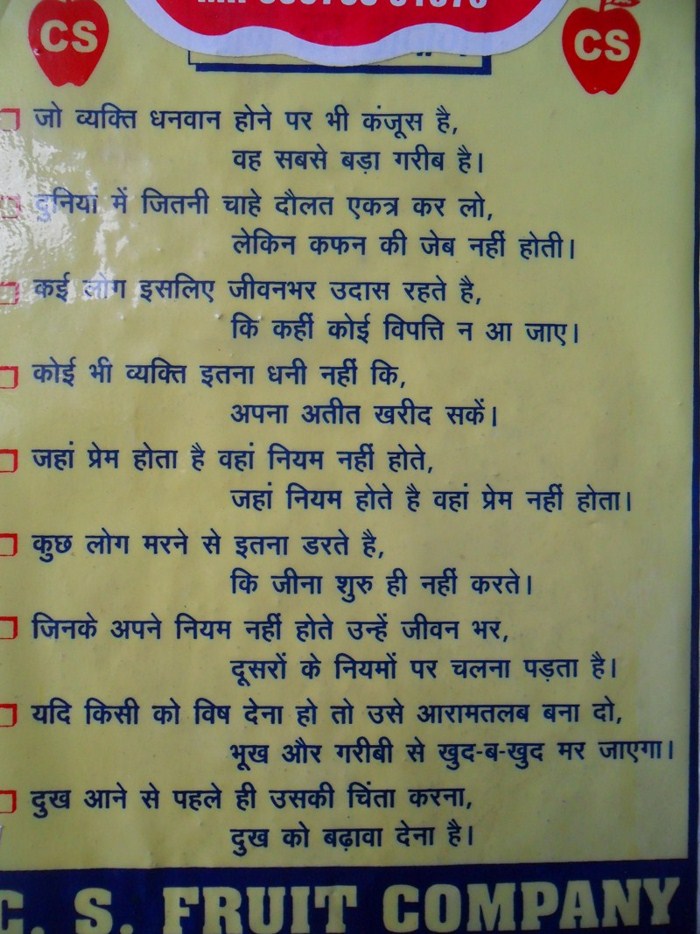 CS
CS
जो व्यक्ति धनवान होने पर भी कंजूस है,
वह सबसे बड़ा गरीब है।
दुनियां में जितनी चाहे दौलत एकत्र कर लो,
लेकिन कफन की जेब नहीं होती।
कई लोग इसलिए जीवनभर उदास रहते है,
कि कहीं कोई विपत्ति न आ जाए।
कोई भी व्यक्ति इतना धनी नहीं कि,
अपना अतीत खरीद सकें।
जहां प्रेम होता है वहां नियम नहीं होते,
जहां नियम होते है वहां प्रेम नहीं होता।
कुछ लोग मरने से इतना डरते है,
कि जीना शुरु ही नहीं करते।
जिनके अपने नियम नहीं होते उन्हें जीवन भर,
दूसरों के नियमों पर चलना पड़ता है।
यदि किसी को विष देना हो तो उसे आरामतलब बना दो,
भूख और गरीबी से खुद-ब-खुद मर जाएगा।
दुख आने से पहले ही उसकी चिंता करना,
दुख को बढ़ावा देना है।
C. S. FRUIT COMPANY